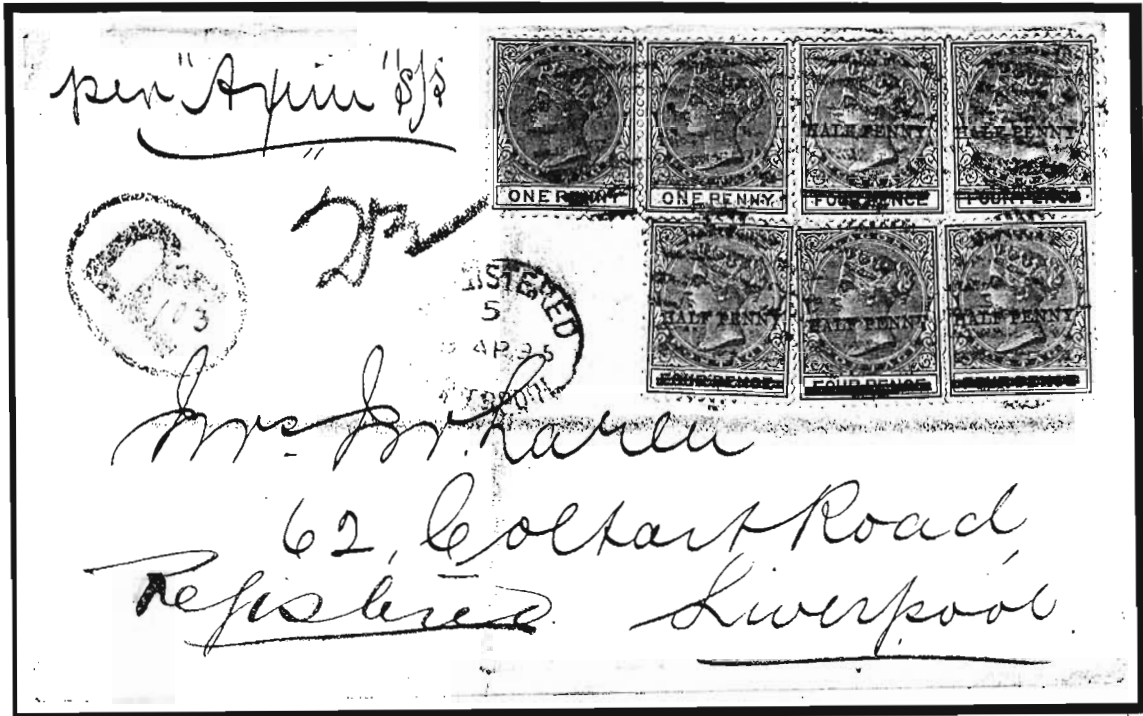 per "Axim" S/S
ONE PENNY ONE PENNY HALF PENNY FOUR PENCE HALF PENNY FOUR PENCE
HALF PENNY FOUR PENCE HALF PENNY FOUR PENCE HALF PENNY FOUR PENCE
R
103
ISTERED
5
AP 95
Mrs. W. Laren
62, Coltart Road,
Registered Liverpool.